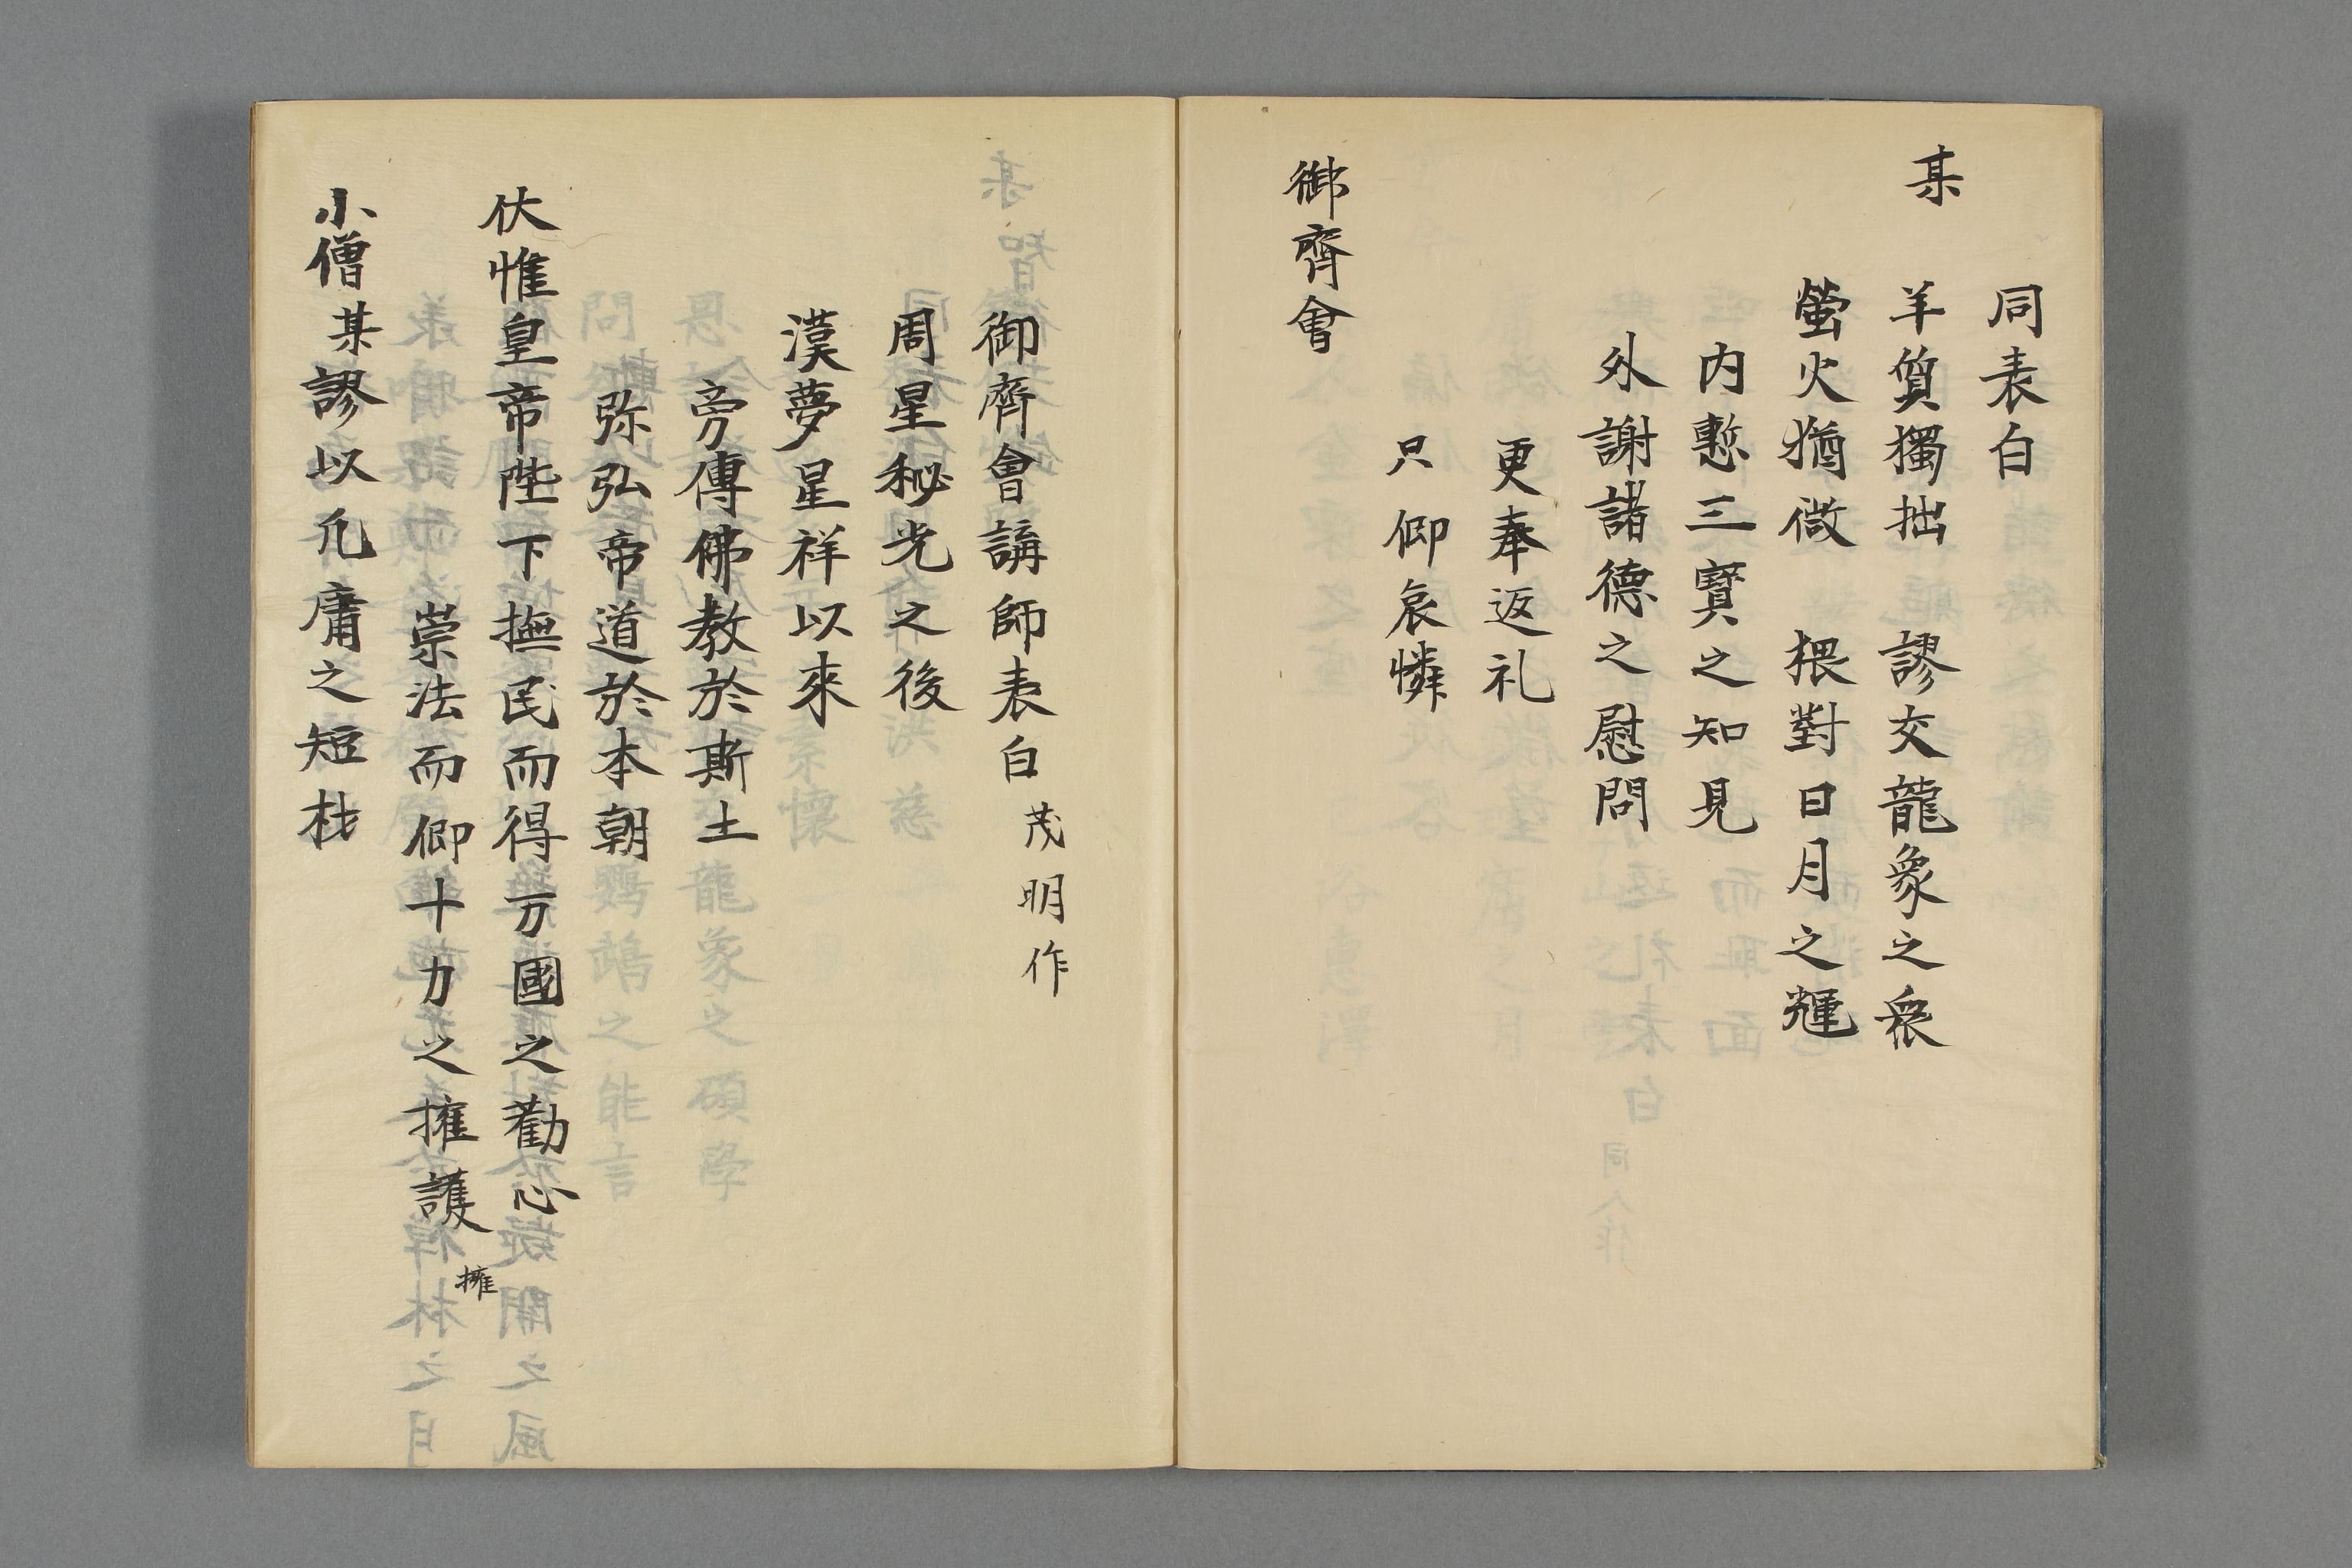 同表白
某　羊質獨拙　謬交龍象之衆
螢火猶微　猥對日月之輝
内慙三寶之知見
外謝諸德之慰問
更奉返礼
只仰哀憐
御齊會
御齊會講師表白 茂明作
周星秘光之後
漢夢星祥以來
旁傳佛教於斯土
弥弘帝道於本朝
伏惟皇帝陛下撫民而得万國之勸心
崇法而仰十力之擁護
擁
小僧某謬以凡庸之短材